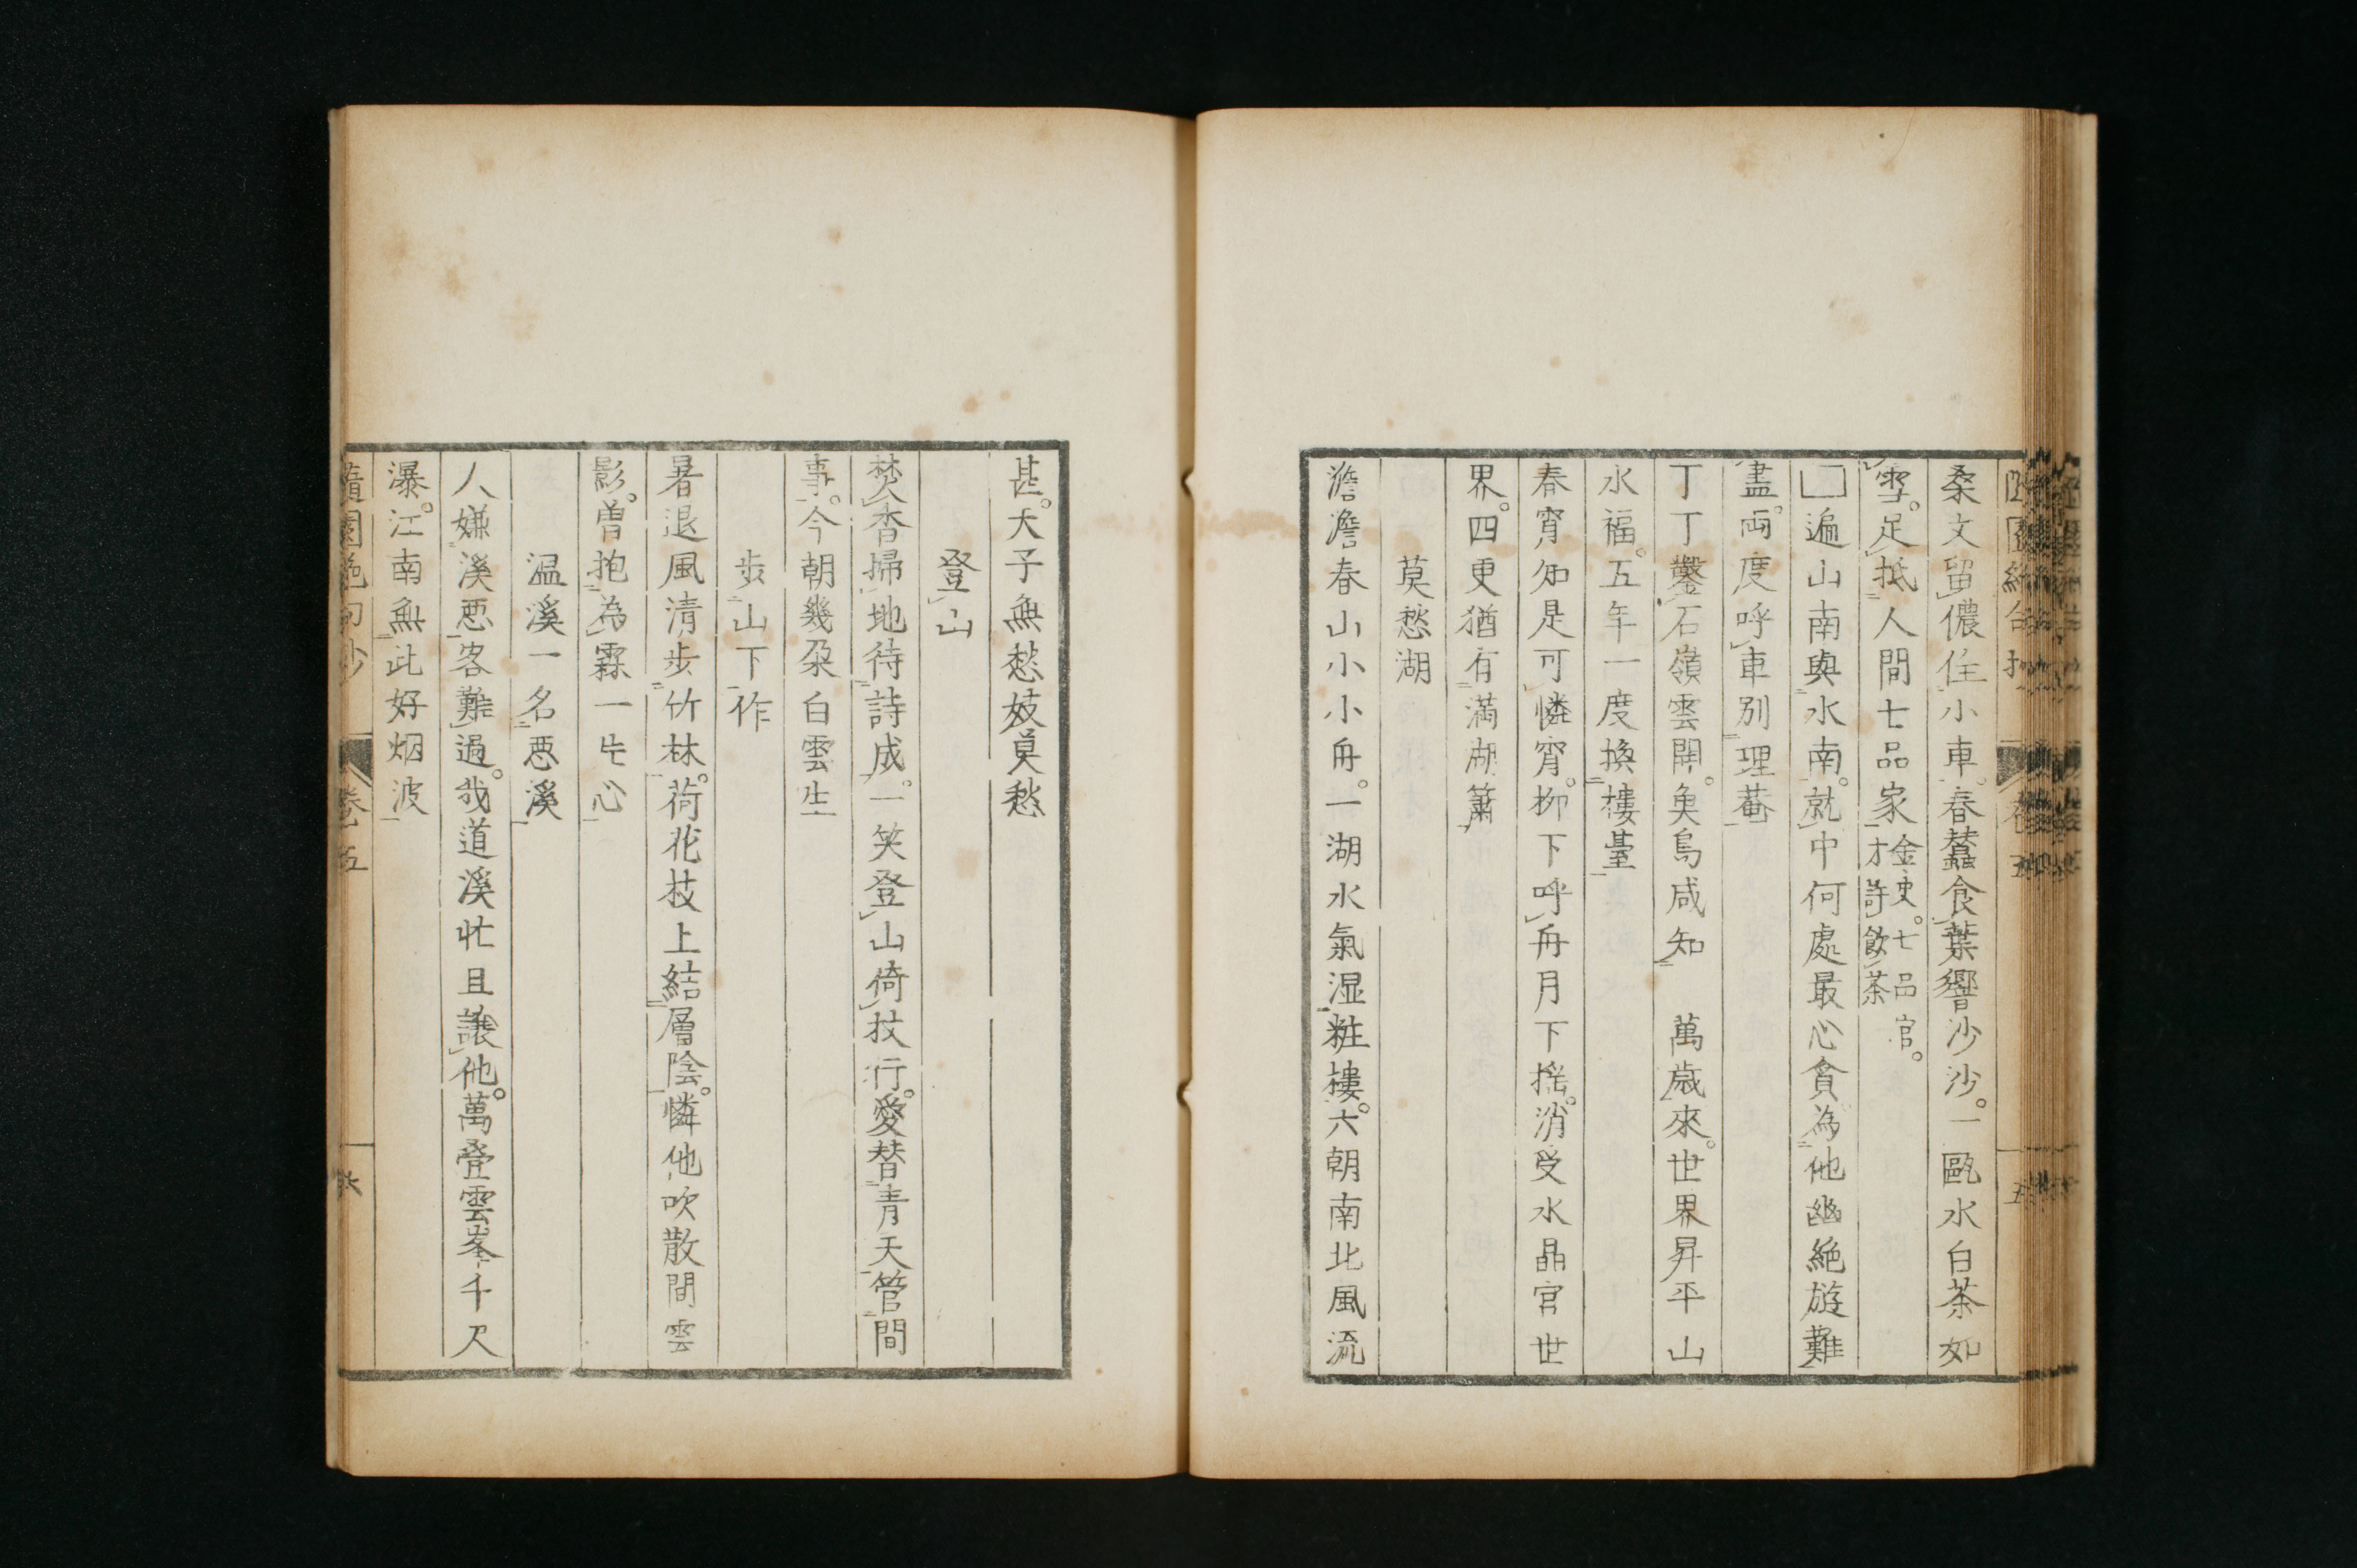 桑文留儂住小車。春蠶食葉響沙沙。一甌水白茶如
雪。足抵人間七品家金史。七品官。
才許飲茶
遍山南與水南。就中何處最心貪。為他幽絶遊難
盡。両度呼車別理菴
丁丁鑿石嶺雲開。魚鳥咸知萬歳來。世界昇平山
水福。五年一度換樓臺
春宵知是可憐宵。柳下呼舟月下搖。消受水晶宮世
界。四更猶有滿湖簫
莫愁湖
澹澹春山小小舟。一湖水氣湿粧樓。六朝南北風流
甚。天子無愁妓莫愁
登山
焚香掃地待詩成。一笑登山倚杖行。愛替青天管間
事。今朝幾朶白雲生
歩山下作
暑退風清歩竹林。荷花枝上結層陰。憐他吹散間雲
影。曽抱為霖一片心
温溪一名悪溪
人嫌溪悪客難過。我道溪忙且讓他。萬疊雲峯千尺
瀑。江南無此好烟波
隨園絶句抄 卷五